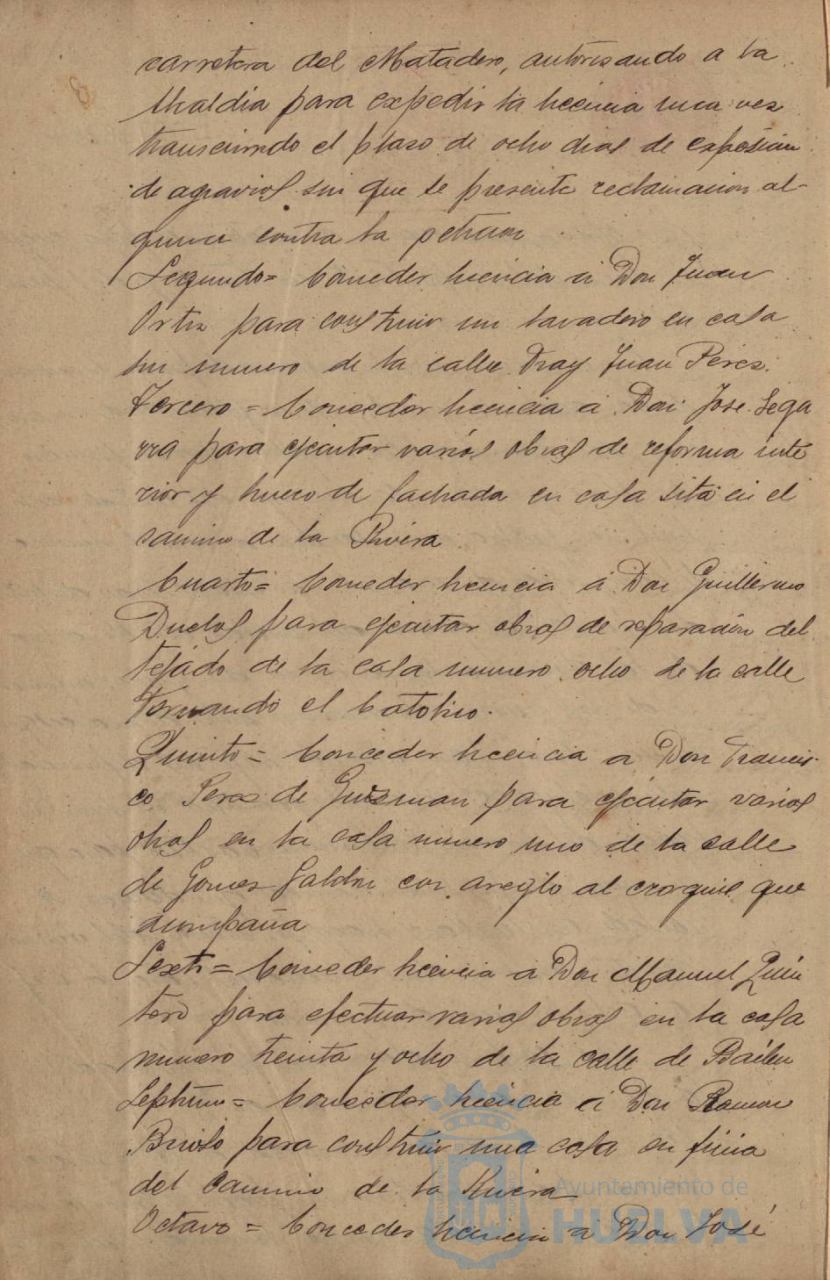 carretera del Matadero, autorisando a la
Alcaldia para expedir la licencia una ves
transcurrido el plaso de ocho dias de exposicion
de agravios sin que se presente reclamacion al-
guna contra la peticion
Segundo = Conceder licencia á Don Juan
Ortiz para construir un lavadero en casa
sin numero de la calle Fray Juan Peres.
Tercero = Conceder licencia á Don José Sega
rra para ejecutar varias obras de reforma inte
rior y hueco de fachada en casa sita en el
camino de la Rivera
Cuarto = Conceder licencia á Don Guillermo
Duclos para ejecutar obras de reparacion del
tejado de la casa numero ocho de la calle
Fernando el Catolico.
Quinto = Conceder licencia a Don Francis-
co Peres de Gusman para ejecutar varias
obras en la casa numero uno de la calle
de Gomes Jaldon con areglo al croquis que
acompaña
Sexto = Conceder licencia a Don Manuel Quin
tero para efectuar varias obras en la casa
numero treinta y ocho de la calle de Bailen
Septimo = Conceder licencia á Don Ramon
para construir una casa en finca
del Camino de la Rivera
Octavo = Conceder licencia á Don José
Ayuntamiento de
HUELVA